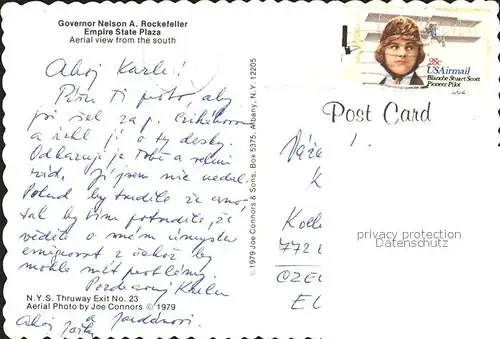 Governor Nelson A. Rockefeller
Empire State Plaza
Aerial view from the south
Ahoj Karle!
Píšu Ti proto, aby
jsi šel za p.
a řekl já o ty desky.
Odkazuje je Tobě a
rád. Já jsem nic nedal.
Pokud by tvrdili že ano,
tak by tím potvrdili, že
věděli o mém úmyslu
emigrovat z čehož by
mohli mít problémy.
Pozdravuj
N.Y.S. Thruway Exit No. 23
Aerial Photo by Joe Connors © 1979
Ahoj a
© 1979 Joe Connors & Sons, Box 5375, Albany, N.Y. 12205
28c
USAirmail
Blanche Stuart Scott
Pioneer Pilot
Post Card
Váže
K
Koll
772
CZE
EU
privacy protection
Datenschutz